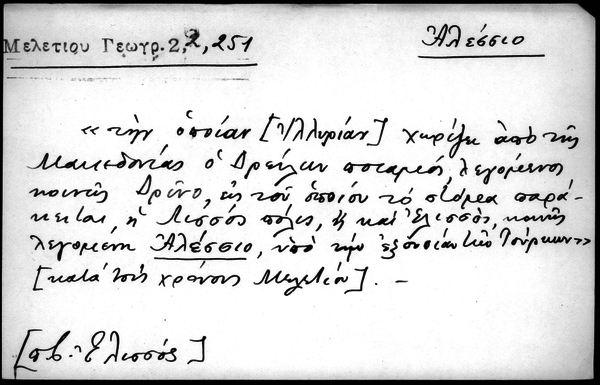 Μελετίου Γεωγρ. 2, 2, 251
Ἀλέσσιο
«τὴν ὁποίαν [Ἰλλυρίαν] χωρίζει ἀπὸ τῆς
Μακεδονίας ὁ Δρείλων ποταμός, λεγόμενος
κοινῶς Δρῖνο, εἰς τοῦ ὁποίου τὸ στόμα παρά-
κειται ἡ Λισσός πόλις, ἢ καὶ Ἐλισσός, κοινῶς
λεγομένη Ἀλέσσιο, ὑπὸ τὴν ἐξουσίαν τῶν Τούρκων»
[κατά τούς χρόνους Μελετίου]. —
[πβ. Ἐλισσός]